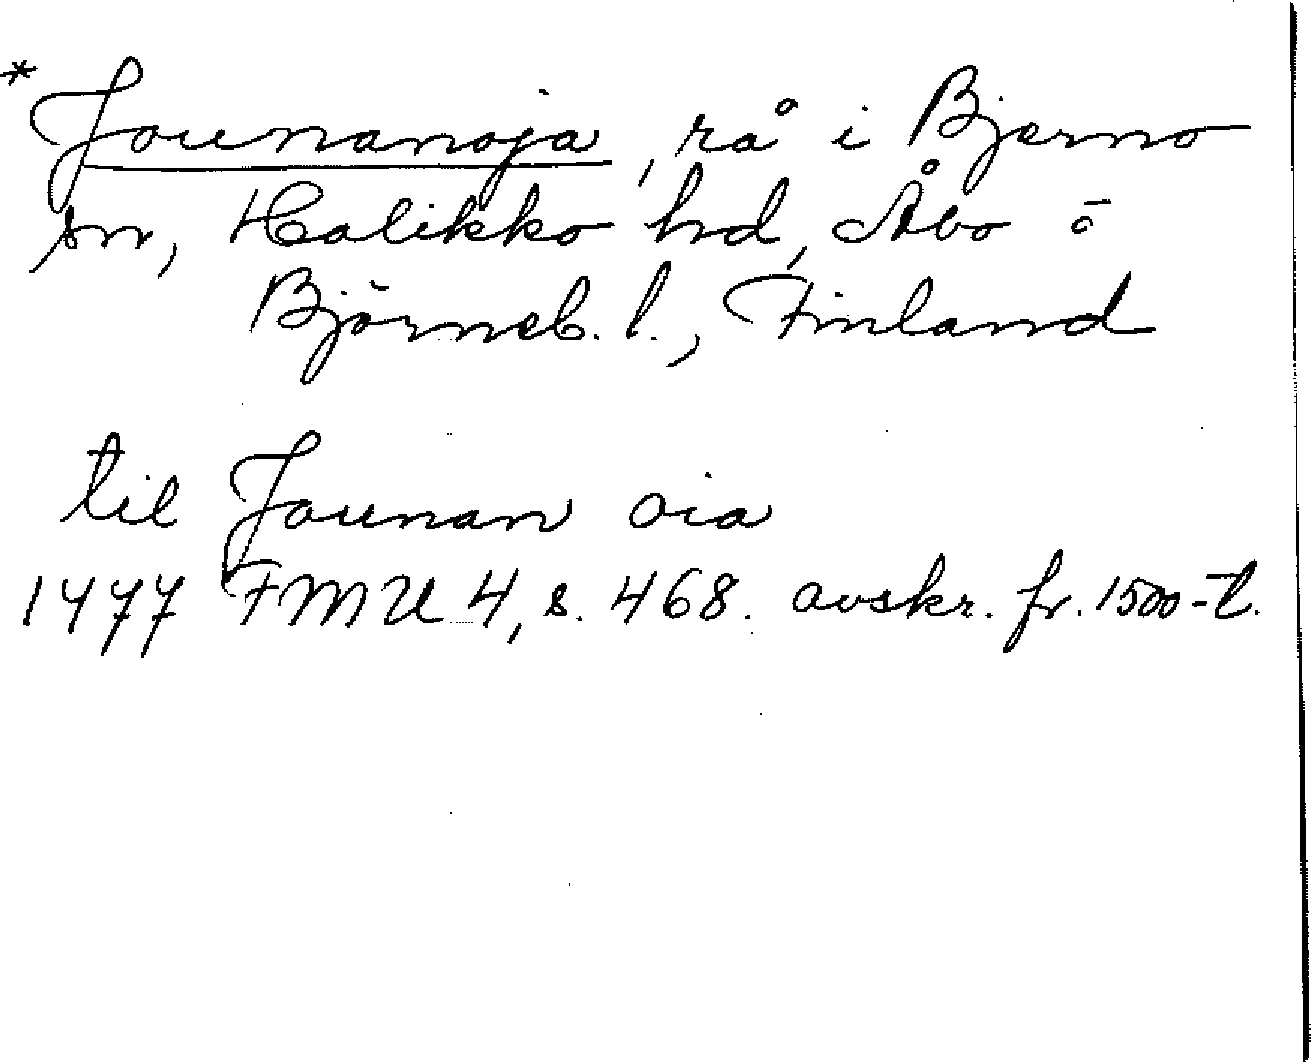 * Jounanoja, rå i Bjerno
sn, Halikko hd, Åbo o
Björneb. l., Finland
til Jounan oia
1477 FMU 4, s. 468. avskr. fr. 1500-t.